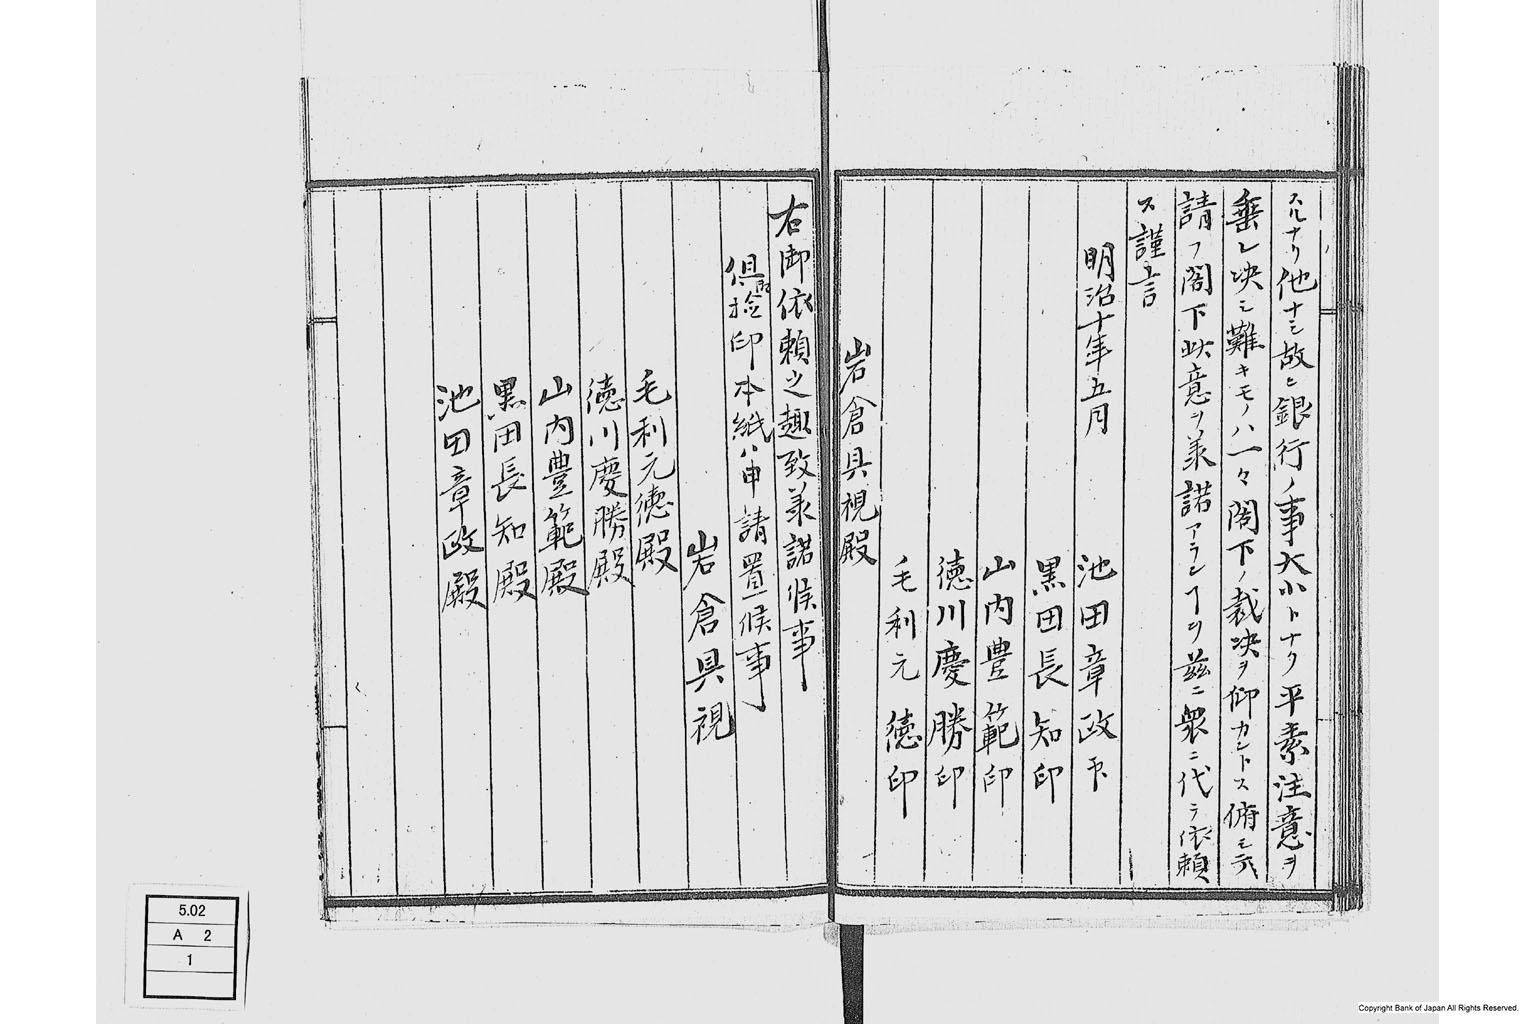 スルナリ他ナシ故ニ銀行ノ事大小トナク平素注意ヲ
垂レ决シ難キモノハ一々閣下ノ裁决ヲ仰カントス俯シテ
請フ閣下此意ヲ承諾アランヿヲ茲ニ衆ニ代ラ依頼
ス謹言
明治十年五月
池田章政印
黒田長知印
山内豊範印
徳川慶勝印
毛利元徳印
岩倉具視殿
右御依頼之趣致承諾候事
倶捡印本紙ハ申請置候事
岩倉具視
毛利元徳殿
徳川慶勝殿
山内豊範殿
黒田長知殿
池田章政殿
5.02
A 2
1
Copyright Bank of Japan All Rights Reserved.